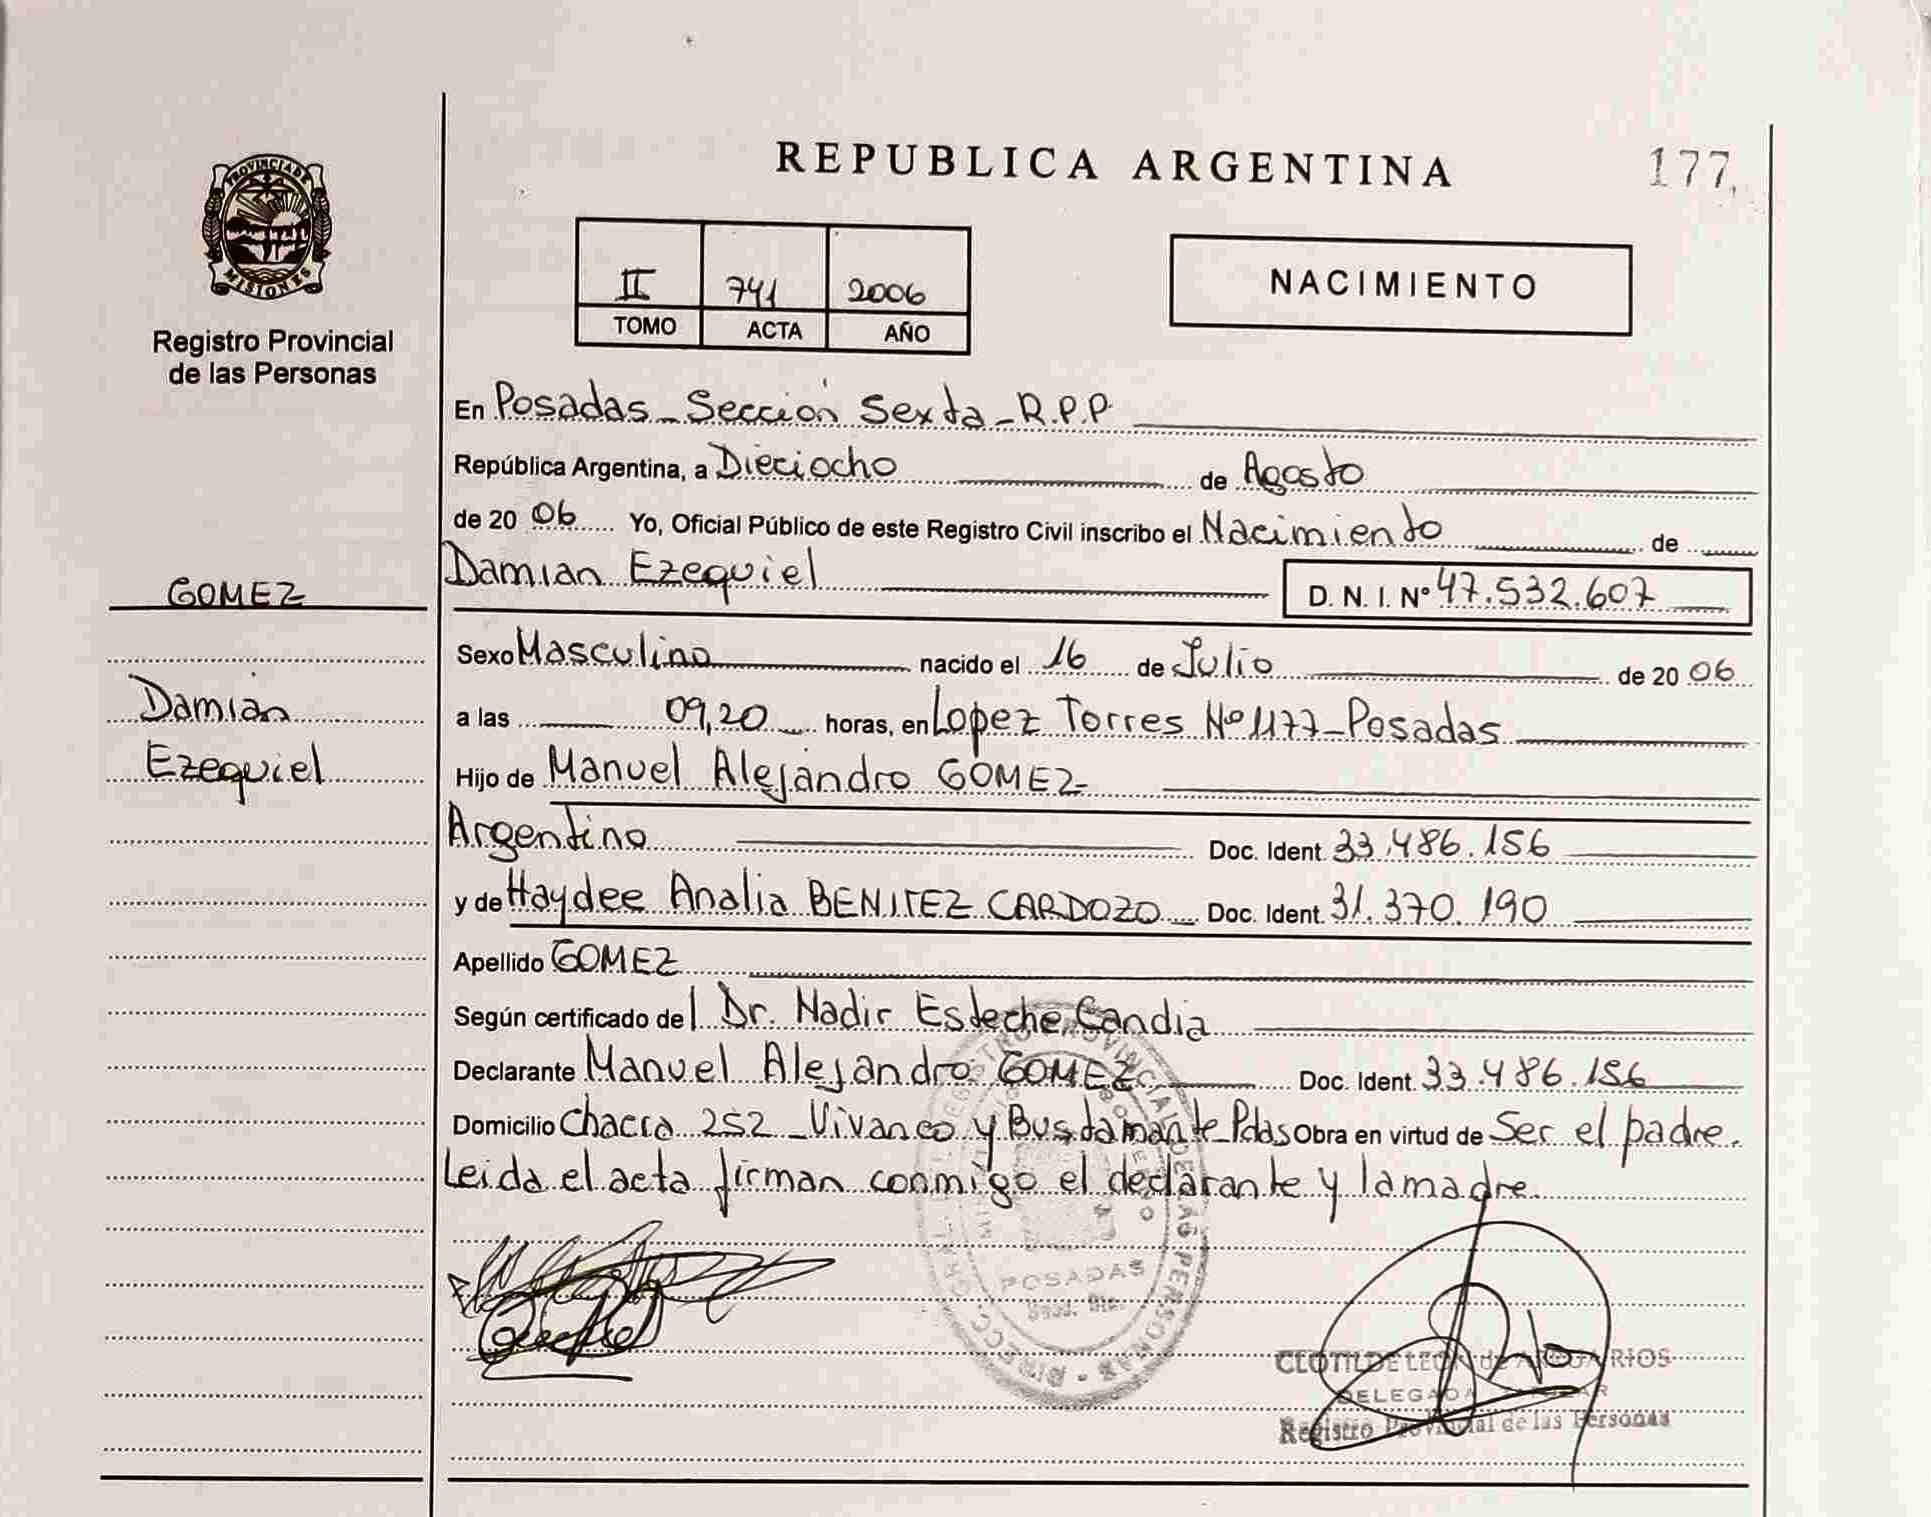 PROVINCIA DE
MISIONES
Registro Provincial
de las Personas
GOMEZ
Damián
Ezequiel
REPUBLICA ARGENTINA
177
II 741 2006
TOMO ACTA AÑO
NACIMIENTO
En Posadas - Sección Sexta - R.P.P
República Argentina, a Dieciocho de Agosto
de 2006 Yo, Oficial Público de este Registro Civil inscribo el Nacimiento de
Damian Ezequiel D. N. I. Nº 47.532.607
Sexo Masculino nacido el 16 de Julio de 2006
a las 09,20 horas, en Lopez Torres Nº 1177 - Posadas
Hijo de Manuel Alejandro GOMEZ
Argentino Doc. Ident. 33.486.156
y de Haydee Analia BENITEZ CARDOZO Doc. Ident. 31.370.190
Apellido GOMEZ
Según certificado del Dr. Nadir Esteche Candia
Declarante Manuel Alejandro GOMEZ Doc. Ident. 33.486.156
Domicilio Chacra 252 - Vivanco y Bustamante - Pdas Obra en virtud de Ser el padre.
Leida el acta firman conmigo el declarante y la madre.
POSADAS
CLOTILDE LEON de RIOS
DELEGADA
Registro Provincial de las Personas